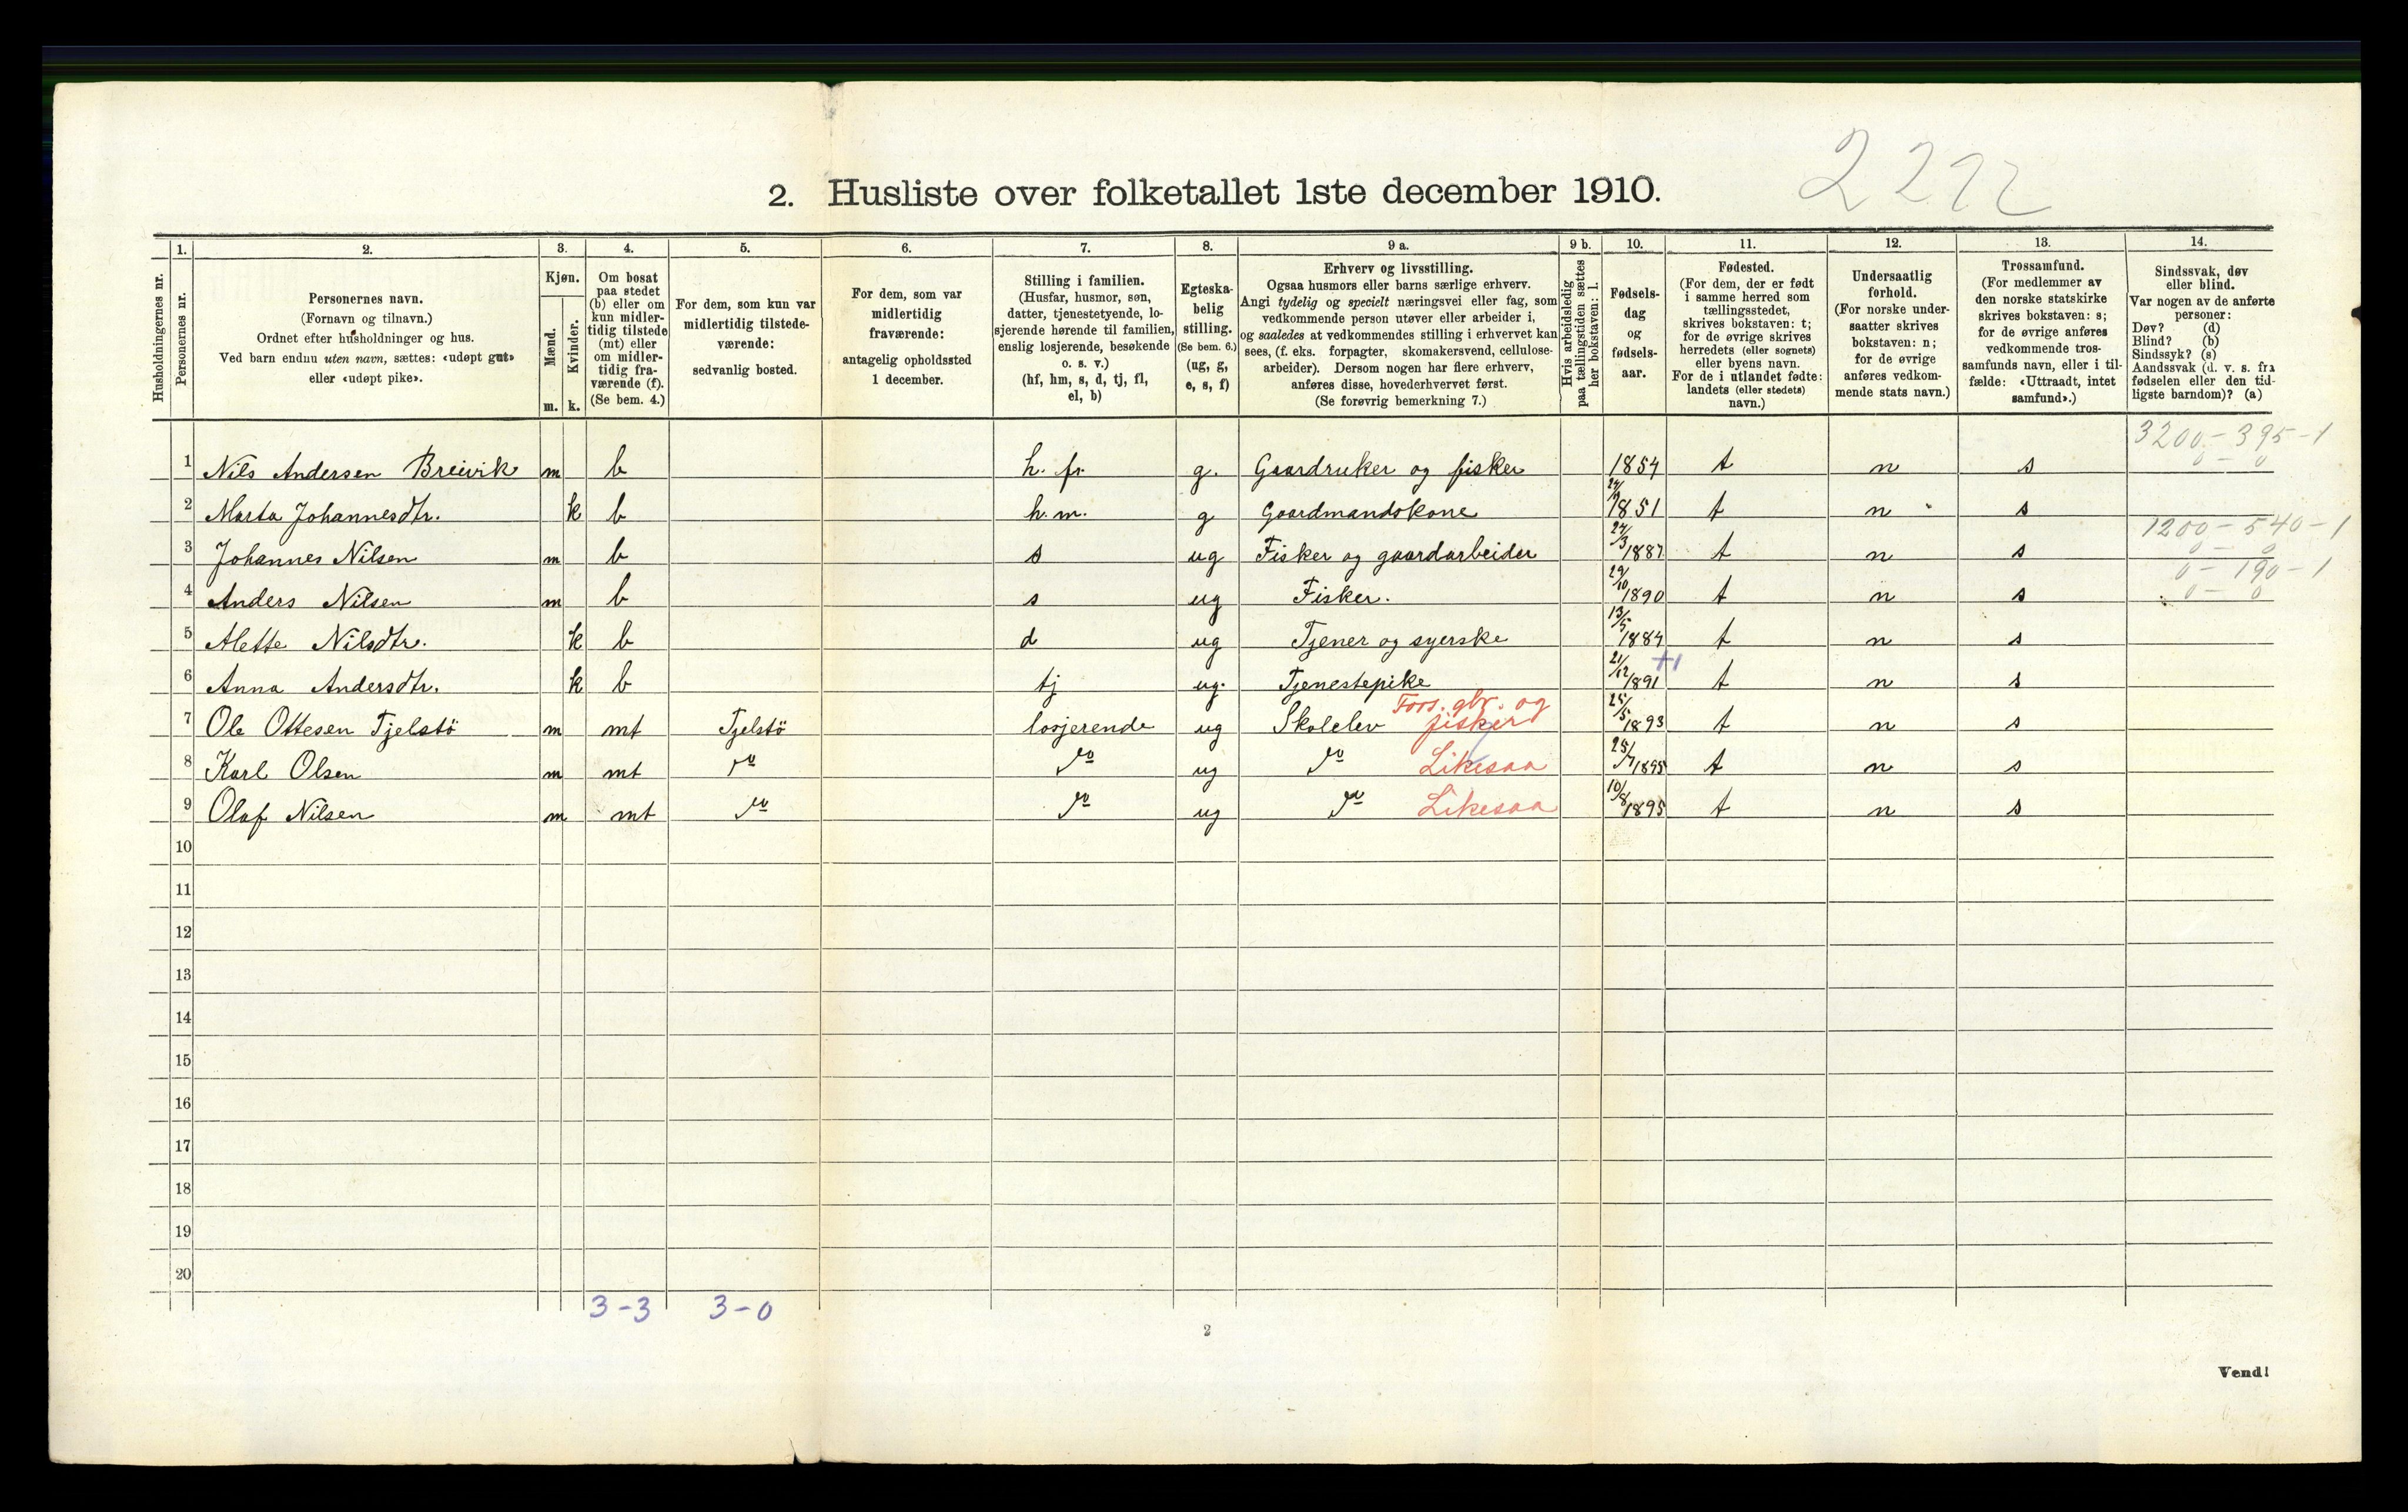 2222
2. Husliste over folketallet 1ste december 1910.
Husholdningernes nr.
1.
Personernes nr.
2.
Personernes navn.
(Fornavn og tilnavn.)
Ordnet efter husholdninger og hus.
Ved barn endnu uten navn, sættes: «udøpt gut»
eller «udøpt pike».
3.
Kjøn.
Mænd.
Kvinder.
m. k.
4.
Om bosat
paa stedet
(b) eller om
kun midler-
tidig tilstede
(mt) eller
om midler-
tidig fra-
værende (f).
(Se bem. 4.)
5.
For dem, som kun var
midlertidig tilstede-
værende:
sedvanlig bosted.
6.
For dem, som var
midlertidig
fraværende:
antagelig opholdssted
1 december.
7.
Stilling i familien.
(Husfar, husmor, søn,
datter, tjenestetyende, lo-
sjerende hørende til familien,
enslig losjerende, besøkende
o. s. v.)
(hf, hm, s, d, tj, fl,
el, b)
8.
Egteska-
belig
stilling.
(Se bem. 6.)
(ug, g,
e, s, f)
9 a.
Erhverv og livsstilling.
Ogsaa husmors eller barns særlige erhverv.
Angi tydelig og specielt næringsvei eller fag, som
vedkommende person utøver eller arbeider i,
og saaledes at vedkommendes stilling i erhvervet kan
sees, (f. eks. forpagter, skomakersvend, cellulose-
arbeider). Dersom nogen har flere erhverv,
anføres disse, hovederhvervet først.
(Se forøvrig bemerkning 7.)
9 b.
Hvis arbeidsledig
paa tællingstiden sættes
her bokstaven: l.
10.
Fødsels-
dag
og
fødsels-
aar.
11.
Fødested.
(For dem, der er født
i samme herred som
tællingsstedet,
skrives bokstaven: t;
for de øvrige skrives
herredets (eller sognets)
eller byens navn.
For de i utlandet fødte:
landets (eller stedets)
navn.)
12.
Undersaatlig
forhold.
(For norske under-
saatter skrives
bokstaven: n;
for de øvrige
anføres vedkom-
mende stats navn.)
13.
Trossamfund.
(For medlemmer av
den norske statskirke
skrives bokstaven: s;
for de øvrige anføres
vedkommende tros-
samfunds navn, eller i til-
fælde: «Uttraadt, intet
samfund».)
14.
Sindssvak, døv
eller blind.
Var nogen av de anførte
personer:
Døv? (d)
Blind? (b)
Sindssyk? (s)
Aandssvak (d. v. s. fra
fødselen eller den tid-
ligste barndom)? (a)
3200 - 395 - 1
0 - 0
1 Nils Andersen Breivik m b h. fr. g. Gaardruker og fisker 1854 t n s
2 Marta Johannesdtr. k b h. m. g Gaardmandskone 24/9 1851 t n s
1200 - 540 - 1
0 - 0
3 Johannes Nilsen m b s ug Fisker og gaardarbeider 27/3 1887 t n s
0 - 190 - 1
0 - 0
4 Anders Nilsen m b s ug Fisker. 29/10 1890 t n s
5 Alette Nilsdtr. k b d ug Tjener og syerske 13/5 1884 t n s
+1
6 Anna Andersdtr. k b tj ug. Tjenestepike 21/12 1891 t n s
Fors. gbr. og
7 Ole Ottesen Tjelstö m mt Tjelstö losjerende ug Skolelev fisker 25/5 1893 t n s
8 Karl Olsen m mt do do ug do Likesaa 25/7 1895 t n s
9 Olaf Nilsen m mt do do ug do Likesaa 10/8 1895 t n s
10
11
12
13
14
15
16
17
18
19
20
3 - 3 3 - 0
2
Vend!